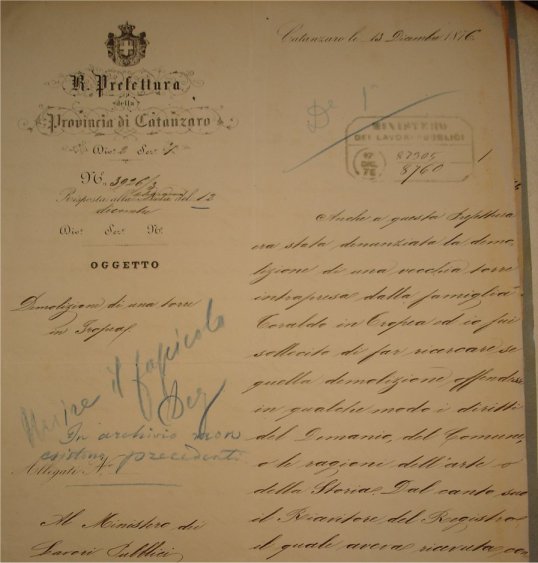 R. Prefettura
della
Provincia di Catanzaro
Div. 2 Sez. 1ª
N. 3026/2
Risposta alla Nota del 13
dicembre
Div. Sez. N.
OGGETTO
Demolizione di una torre
in Tropea
Unire il fascicolo
In archivio non
esistono precedenti
Allegati N.
Al Ministero dei
Lavori Pubblici
Catanzaro le 15 Dicembre 1876
De 1
MINISTERO
DEI LAVORI PUBBLICI
17
DIC
76
87905
8760
Anche a questa Prefettura
era stata denunziata la demo
lizione di una vecchia torre
intrapresa dalla famiglia
Toraldo in Tropea ed io fui
sollecito di far ricercare se
quella demolizione offendesse
in qualche modo i diritti
del Demanio, del Comune
o le ragioni dell'arte o
della Storia. Dal canto suo
il Ricevitore del Registro
il quale aveva ricevuta con